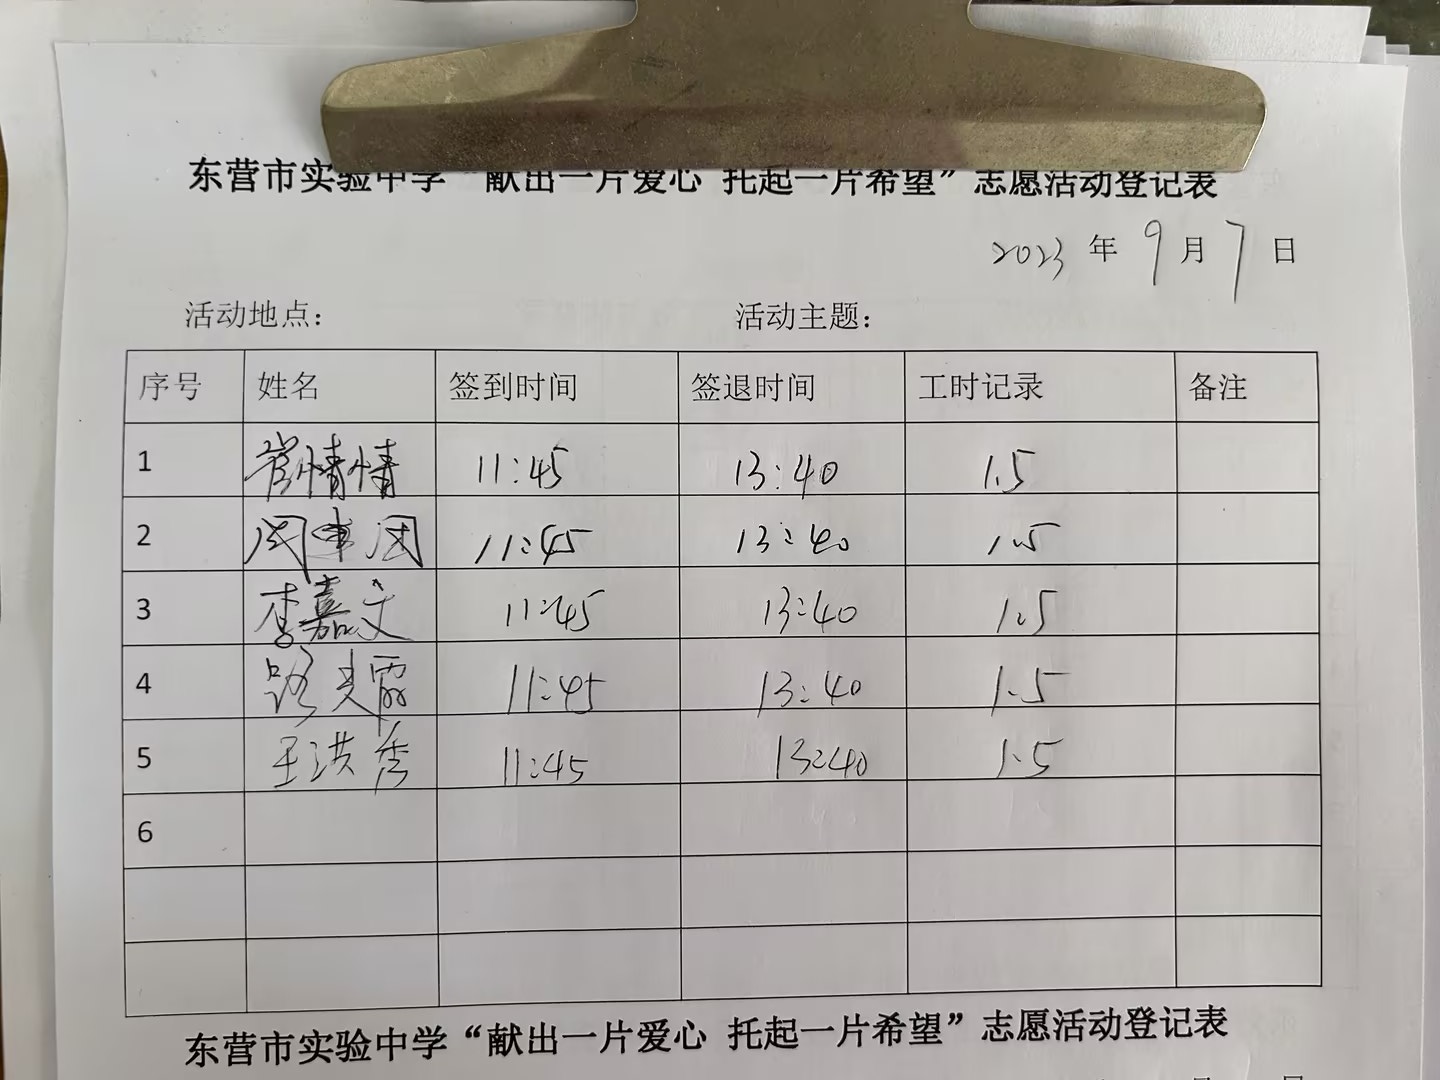 东营市实验中学“献出一片爱心 托起一片希望”志愿活动登记表
2023 年 9 月 7 日
活动地点： 活动主题：
序号 姓名 签到时间 签退时间 工时记录 备注
1 情情 11:45 13:40 1.5
2 11:45 13:40 1.5
3 李嘉文 11:45 13:40 1.5
4 路 霞 11:45 13:40 1.5
5 王洪秀 11:45 13:40 1.5
6
东营市实验中学“献出一片爱心 托起一片希望”志愿活动登记表